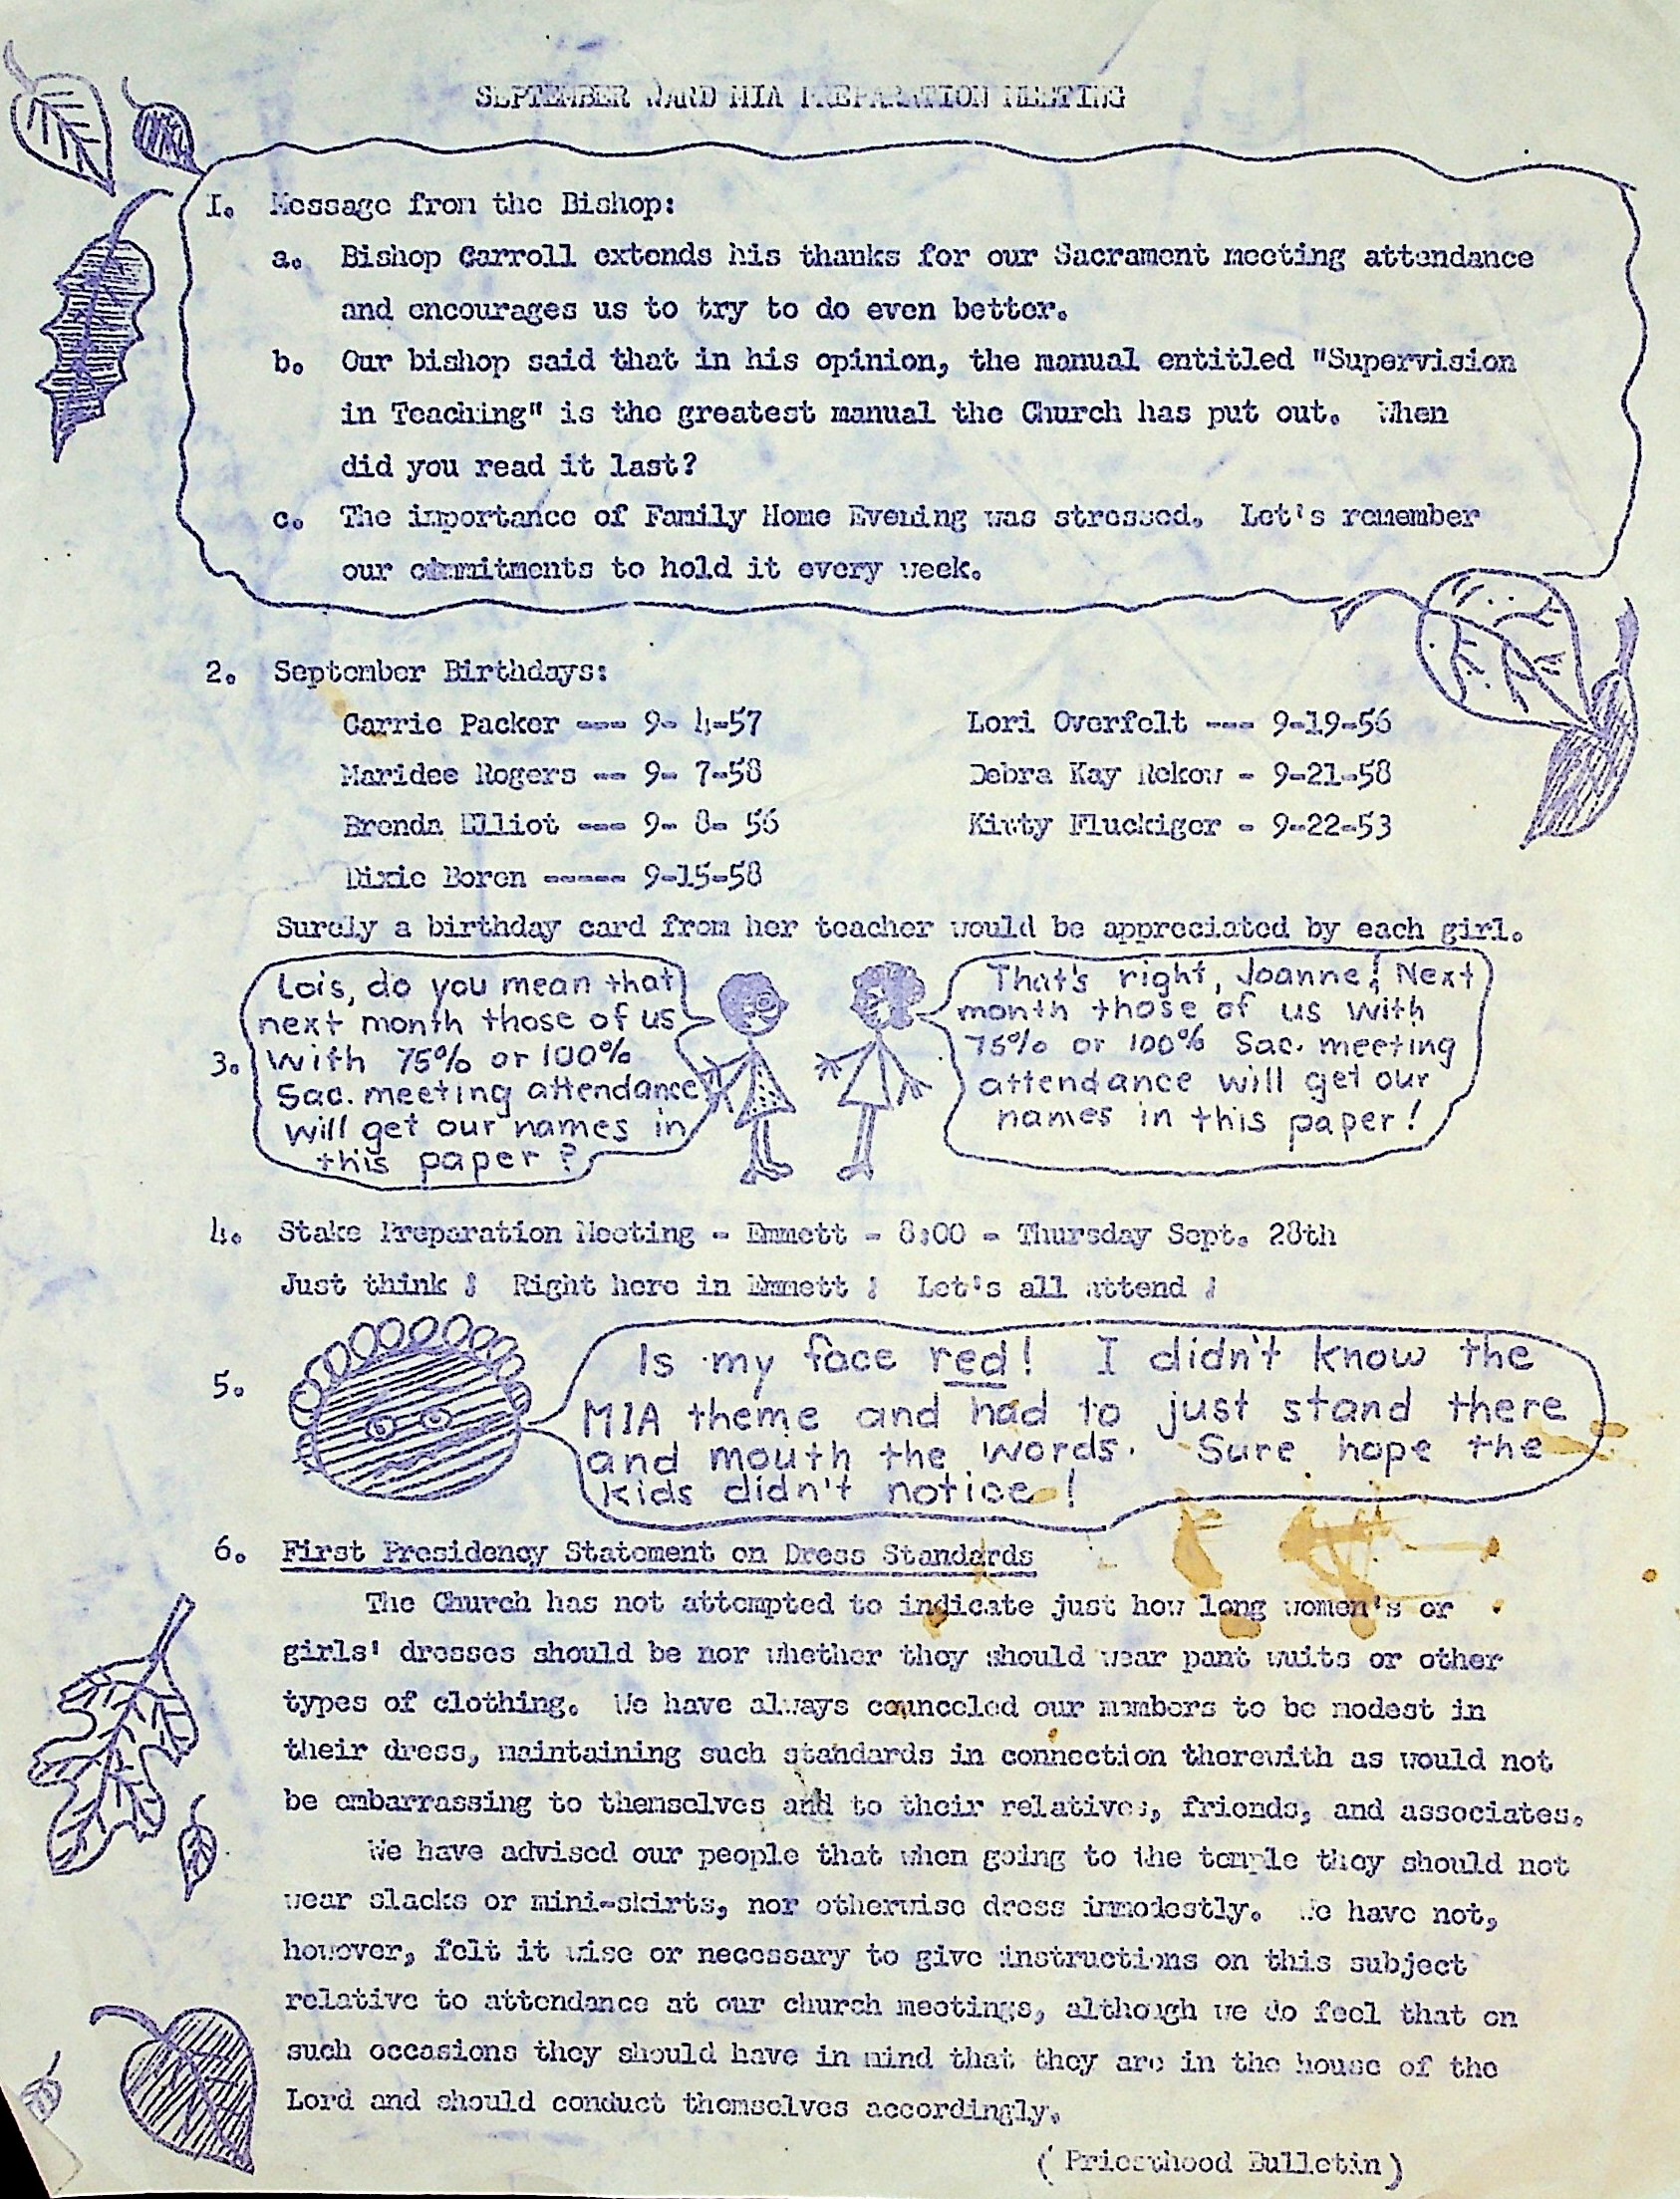 SEPTEMBER WARD MIA PREPARATION MEETING
1. Message from the Bishop:
a. Bishop Carroll extends his thanks for our Sacrament meeting attendance
and encourages us to try to do even better.
b. Our bishop said that in his opinion, the manual entitled "Supervision
in Teaching" is the greatest manual the Church has put out. When
did you read it last?
c. The importance of Family Home Evening was stressed. Let's remember
our commitments to hold it every week.
2. September Birthdays:
Carrie Packer --- 9- 4-57
Maridee Rogers -- 9- 7-58
Brenda Elliot --- 9- 8- 56
Dixie Boren ----- 9-15-58
Lori Overfelt --- 9-19-56
Debra Kay Rekow - 9-21-58
Kitty Fluckiger - 9-22-53
Surely a birthday card from her teacher would be appreciated by each girl.
3.
Lois, do you mean that
next month those of us
with 75% or 100%
Sac. meeting attendance
will get our names in
this paper?
That's right, Joanne! Next
month those of us with
75% or 100% Sac. meeting
attendance will get our
names in this paper!
4. Stake Preparation Meeting - Emmett - 8:00 - Thursday Sept. 28th
Just think ! Right here in Emmett ! Let's all attend !
5.
Is my face red! I didn't know the
MIA theme and had to just stand there
and mouth the words. Sure hope the
kids didn't notice!
6. First Presidency Statement on Dress Standards
The Church has not attempted to indicate just how long women's or
girls' dresses should be nor whether they should wear pant wuits or other
types of clothing. We have always counceled our members to be modest in
their dress, maintaining such standards in connection therewith as would not
be embarrassing to themselves and to their relatives, friends, and associates.
We have advised our people that when going to the temple they should not
wear slacks or mini-skirts, nor otherwise dress immodestly. We have not,
however, felt it wise or necessary to give instructions on this subject
relative to attendance at our church meetings, although we do feel that on
such occasions they should have in mind that they are in the house of the
Lord and should conduct themselves accordingly.
( Priesthood Bulletin )